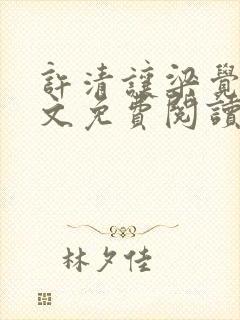 許清讓梁覺
文免費閱讀
林夕佳